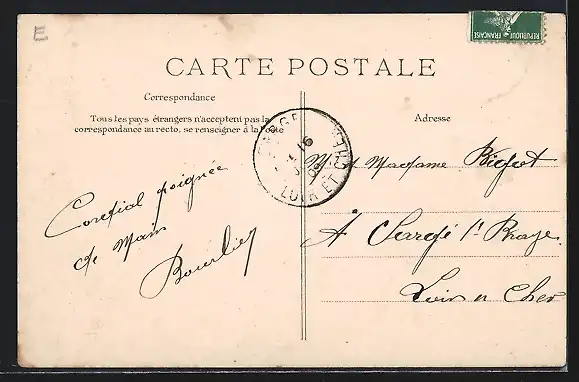 E
REPUBLIQUE FRANCAISE
CARTE POSTALE
Correspondance
Tous les pays étrangers n'acceptent pas la
correspondance au recto, se renseigner à la Poste
Adresse
LOIR ET CHER
16
Cordial poignée
de Main
Bourlier
Mr et Madame
À Sargé s/ Braye
Loir et Cher